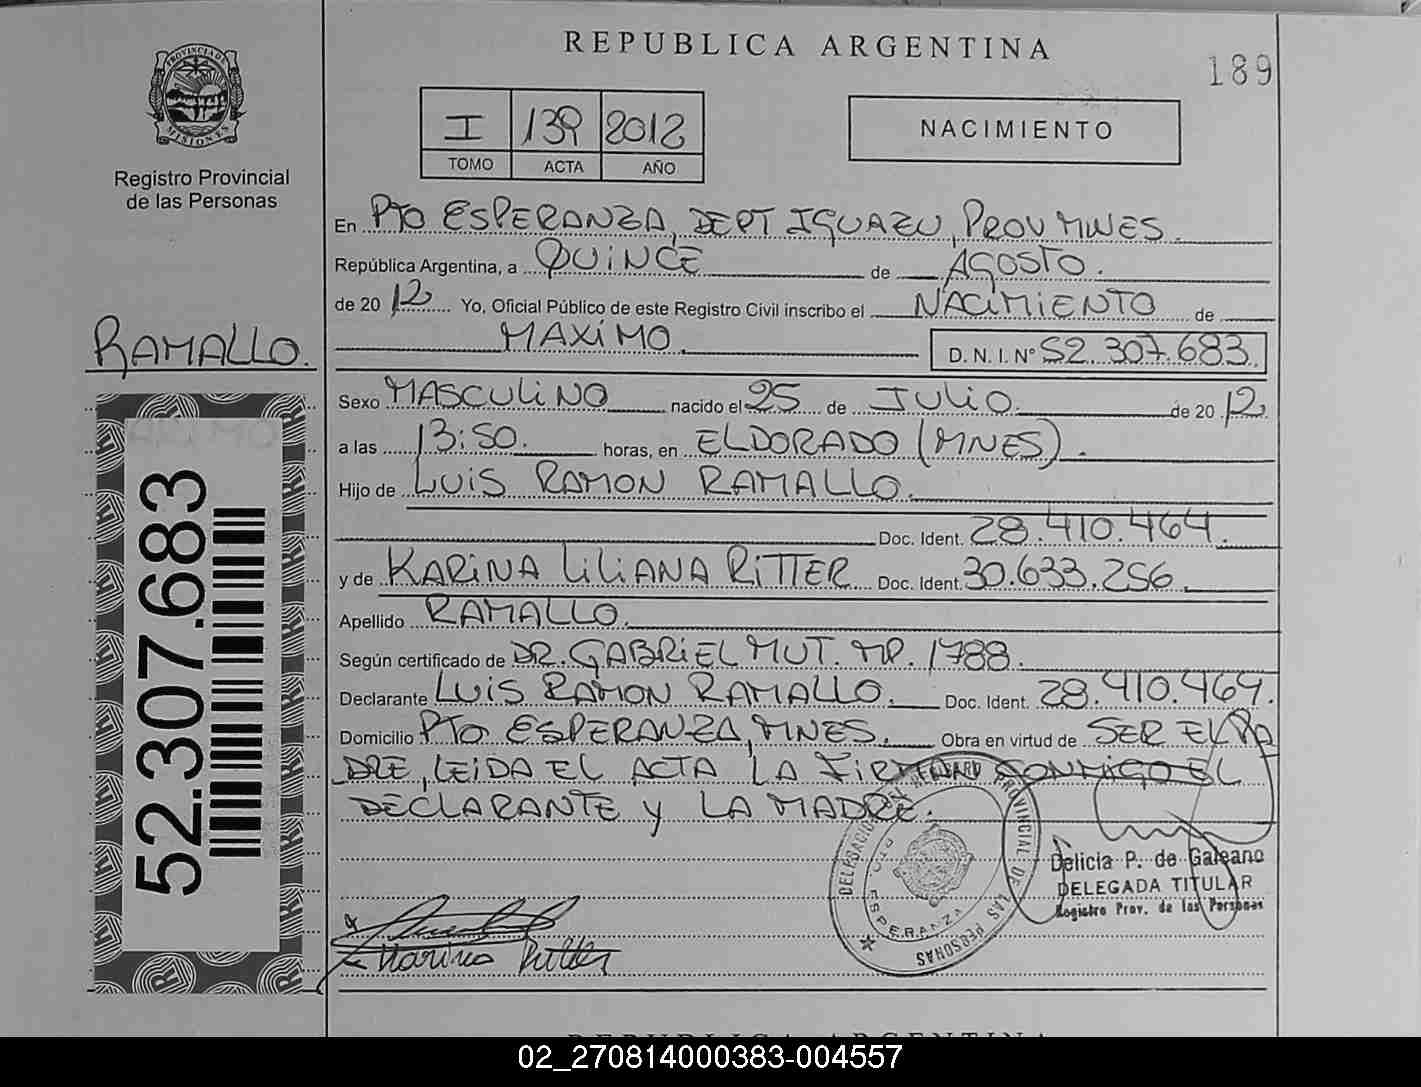 REPUBLICA ARGENTINA
189
PROVINCIA DE MISIONES
Registro Provincial
de las Personas
I 139 2012
TOMO ACTA AÑO
NACIMIENTO
En PTO ESPERANZA, DEPT IGUAZU, PROV MNES.
República Argentina, a QUINCE de AGOSTO.
de 20 12 Yo, Oficial Público de este Registro Civil inscribo el NACIMIENTO de
MAXIMO D. N. I. Nº 52.307.683
RAMALLO.
Sexo MASCULINO nacido el 25 de JULIO de 20 12
a las 13:50. horas, en ELDORADO (MNES).
Hijo de LUIS RAMON RAMALLO.
Doc. Ident. 28.410.464.
y de KARINA LILIANA RITTER Doc. Ident. 30.633.256
Apellido RAMALLO.
Según certificado de DR. GABRIEL MUT. MP. 1788.
Declarante LUIS RAMON RAMALLO. Doc. Ident. 28.410.464.
Domicilio PTO ESPERANZA, MNES. Obra en virtud de SER EL PA
DRE, LEIDA EL ACTA LA FIRMAN CONMIGO EL
DECLARANTE y LA MADRE.
52.307.683
DELEGACION REGISTRO PROVINCIAL DE LAS PERSONAS
PTO ESPERANZA
Delicia P. de Galeano
DELEGADA TITULAR
Registro Prov. de las Personas
Karina Ritter
REPUBLICA ARGENTINA
02_270814000383-004557